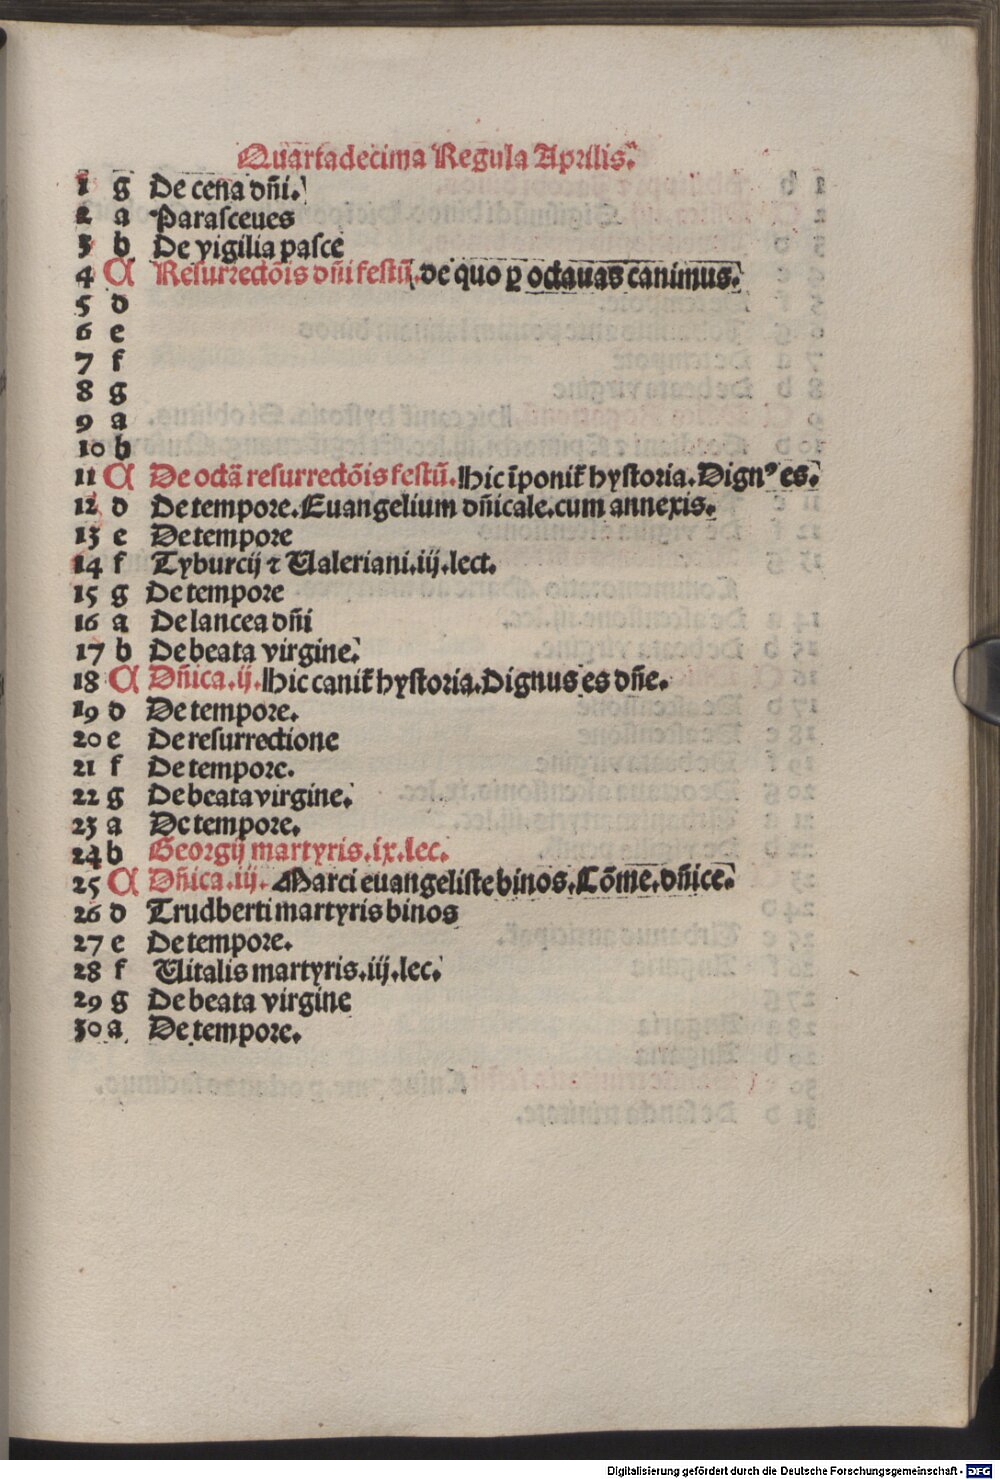 Quartadecima Regula Aprilis.
1 g De cena dn̄i.
2 a Parasceues
3 b De vigilia pasce
4 A Resurrectōis dn̄i festū. de quo ꝑ octauas canimus.
5 d
6 e
7 f
8 g
9 a
10 b
11 A De octā resurrectōis festū. Hic īponit᷑ hystoria. Dignꝰ es.
12 d De tempore. Euangelium dn̄icale. cum annexis.
13 e De tempore
14 f Tyburcij ⁊ Ualeriani. iij. lect.
15 g De tempore
16 a De lancea dn̄i
17 b De beata virgine.
18 A Dn̄ica. ij. Hic canit᷑ hystoria. Dignus es dn̄e.
19 d De tempore.
20 e De resurrectione
21 f De tempore.
22 g De beata virgine.
23 a De tempore.
24 b Georgij martyris. ix. lec.
25 A Dn̄ica. iij. Marci euangeliste binos. Cōme. dn̄ice.
26 d Trudberti martyris binos
27 e De tempore.
28 f Uitalis martyris. iij. lec.
29 g De beata virgine
30 a De tempore.
Digitalisierung gefördert durch die Deutsche Forschungsgemeinschaft - DFG